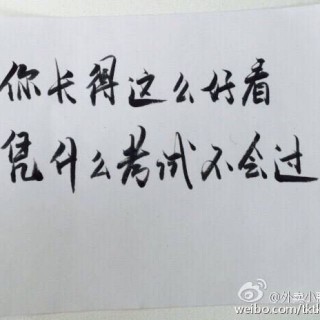 你长得这么好看
凭什么考试不会过
weibo.com/tktk